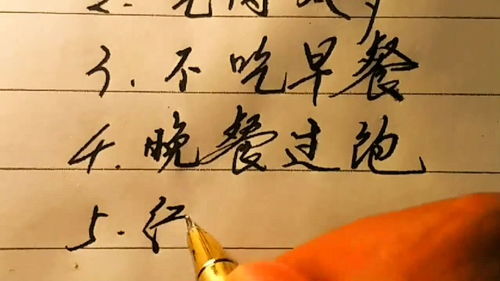 3.不吃早餐
4.晚餐过饱
5.